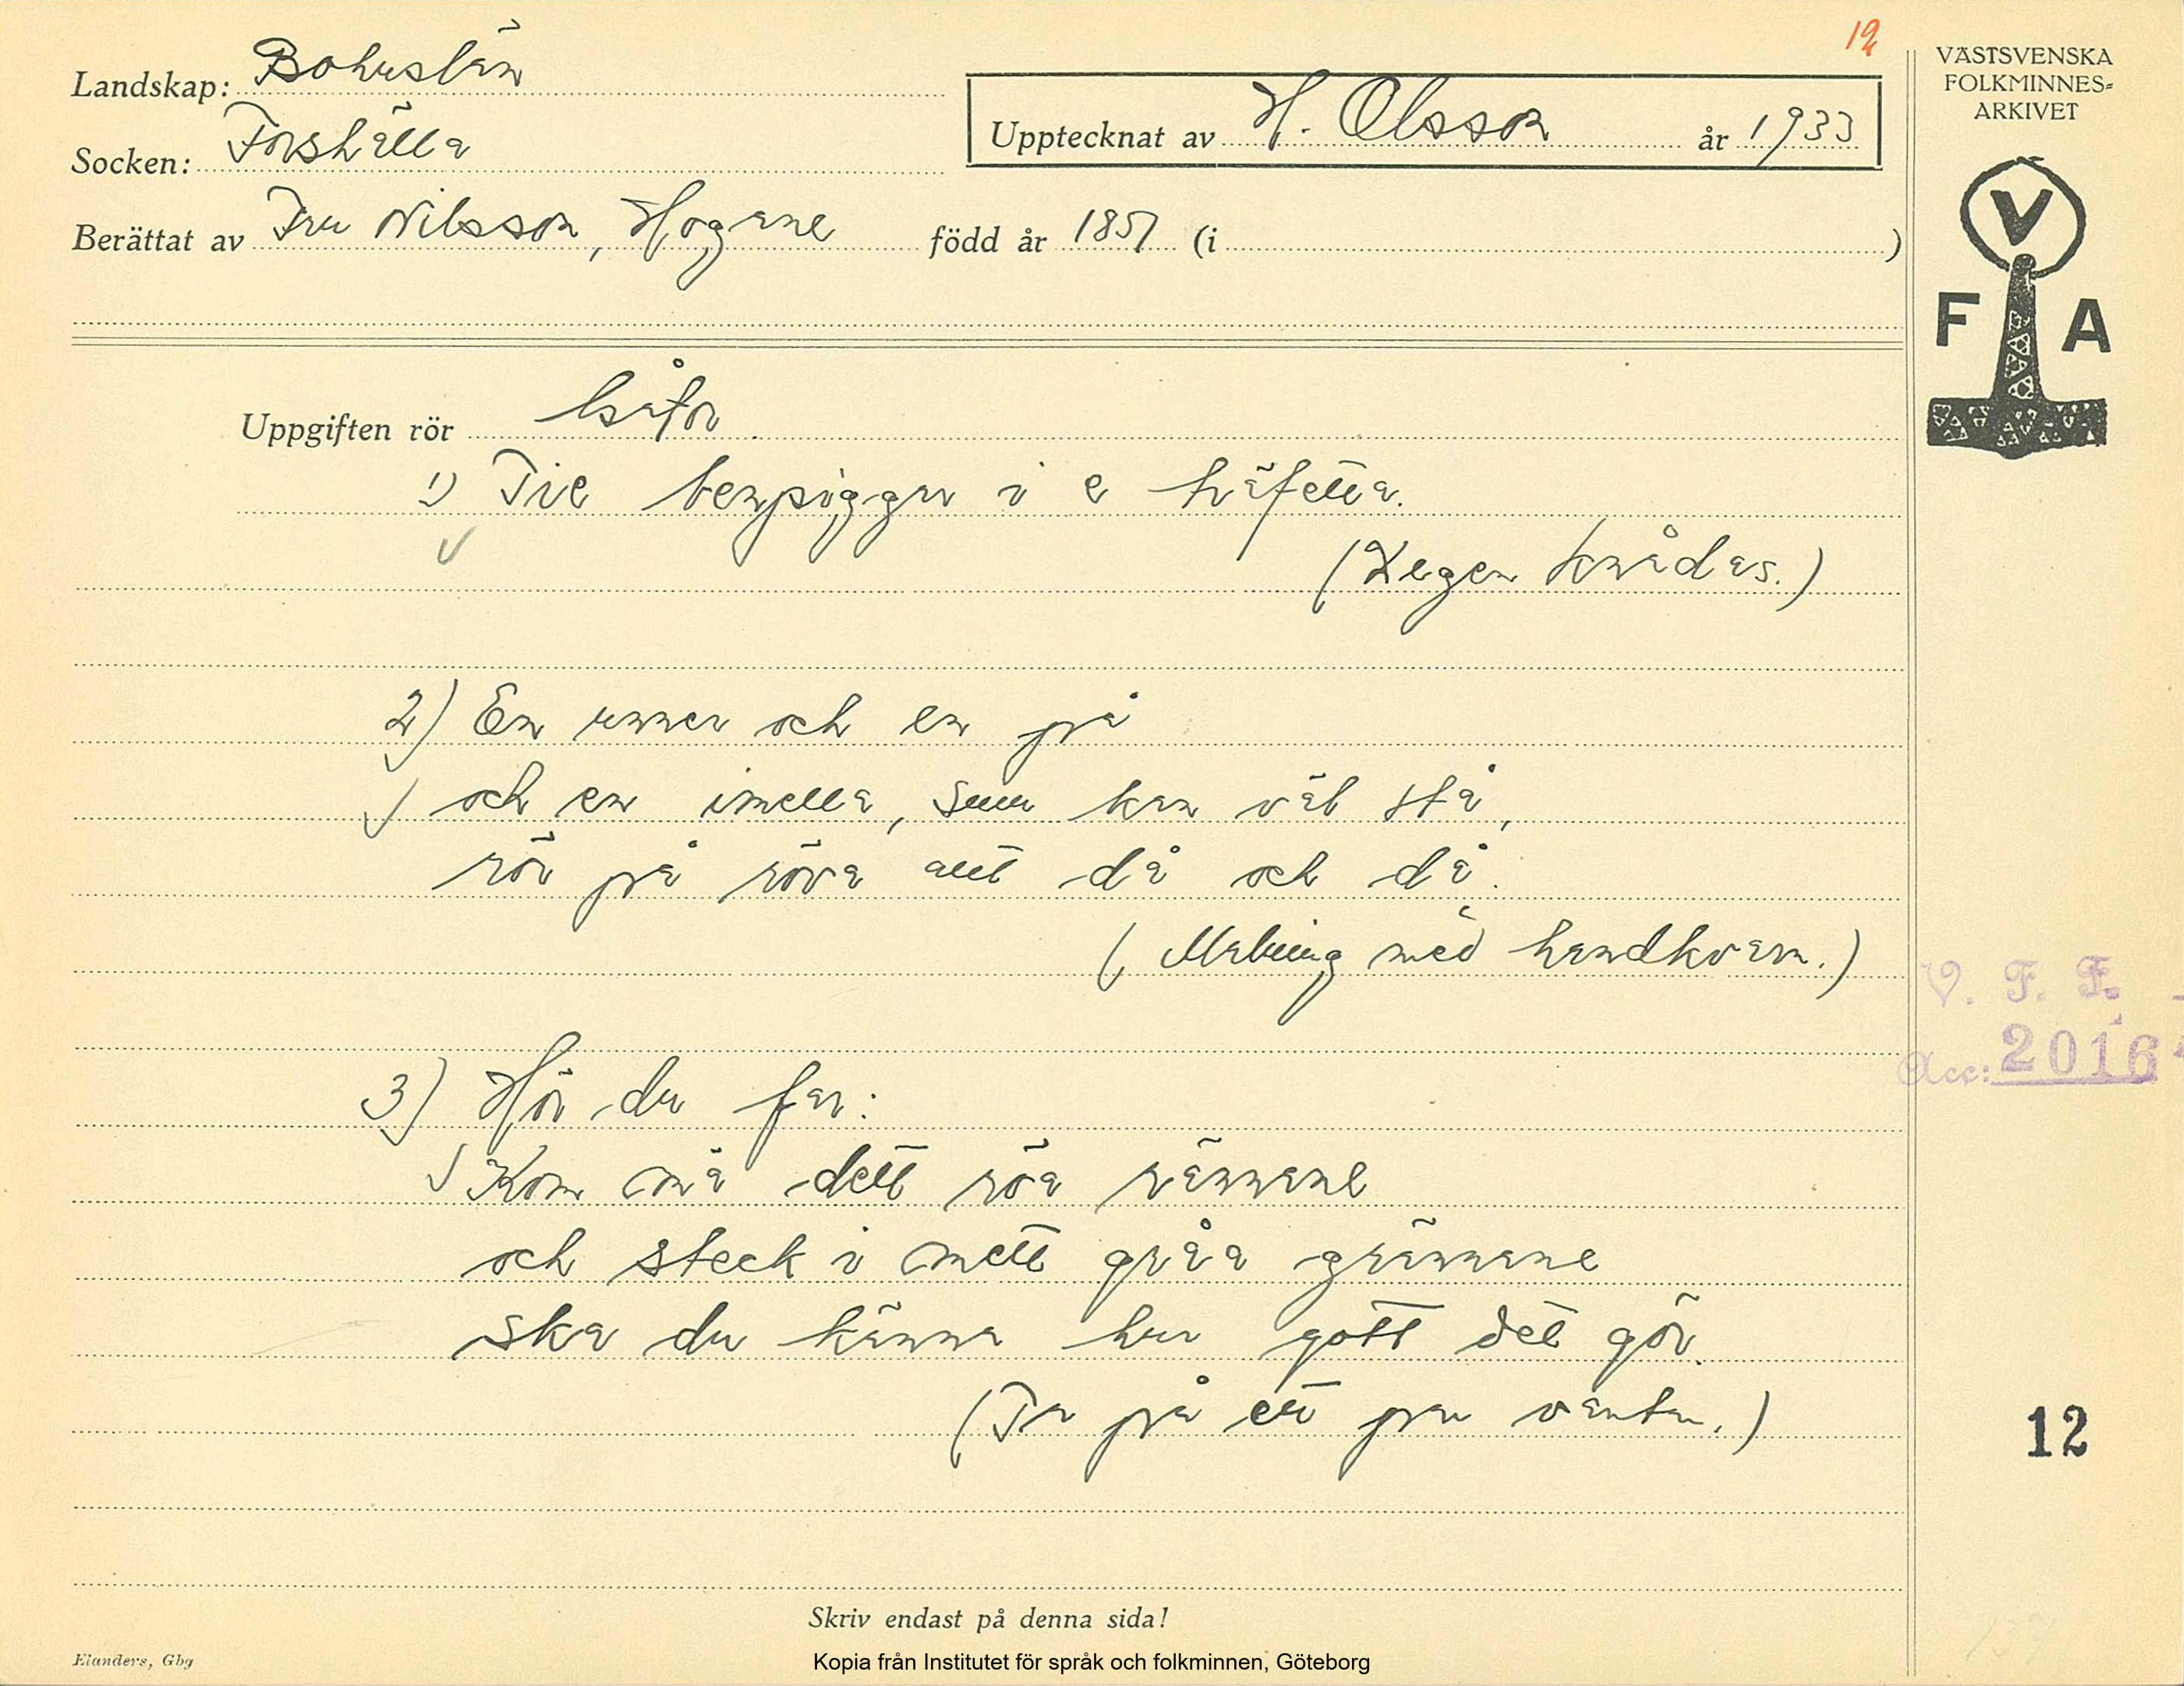 12
Landskap: Bohuslän
Socken: Forshälla
Upptecknat av H. Olsson år 1933
Berättat av Fru Nilsson, Hogane född år 1857 (i )
VÄSTSVENSKA
FOLKMINNES=
ARKIVET
V
F A
Uppgiften rör Gåtor
1) Tie benpiggar i e
(Degen knådas.)
2) En unner och en på
och en imella, sum kan väl stå,
rör på röva allt då och då.
(Malning med handkvarn.)
3) Hör du far:
Kom må dett röa rännane
och steck i mett gråa grännane
ska du känna hur gott det gör.
(Ta på ett par vantar.)
V. F. F.
Acc: 2016
12
Skriv endast på denna sida!
Elanders, Gbg
Kopia från Institutet för språk och folkminnen, Göteborg